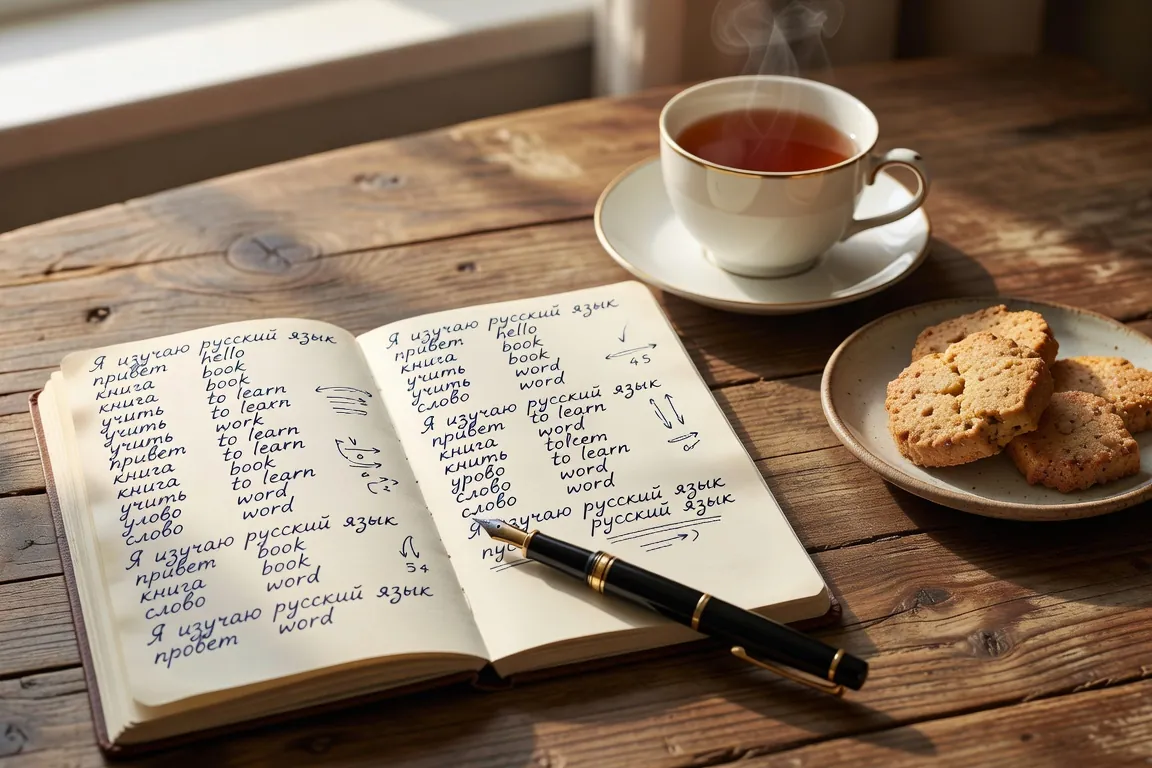 Я изучаю русский язык
привет hello
книга book
книга book
учить to learn
учить to learn
учить work
привет to learn
книга to learn
книга book
учить to learn
улово word
слово word
Я изучаю русский язык
привет book
книга book
слово word
Я изучаю русский язык
провет word
54
Я изучаю русский язык
привет hello
книга book
учить book
учить word
слово
45
Я изучаю русский язык
привет to learn
книга word
книть tolcem
урово to learn
слово word
слово word
русский язык
русский язык